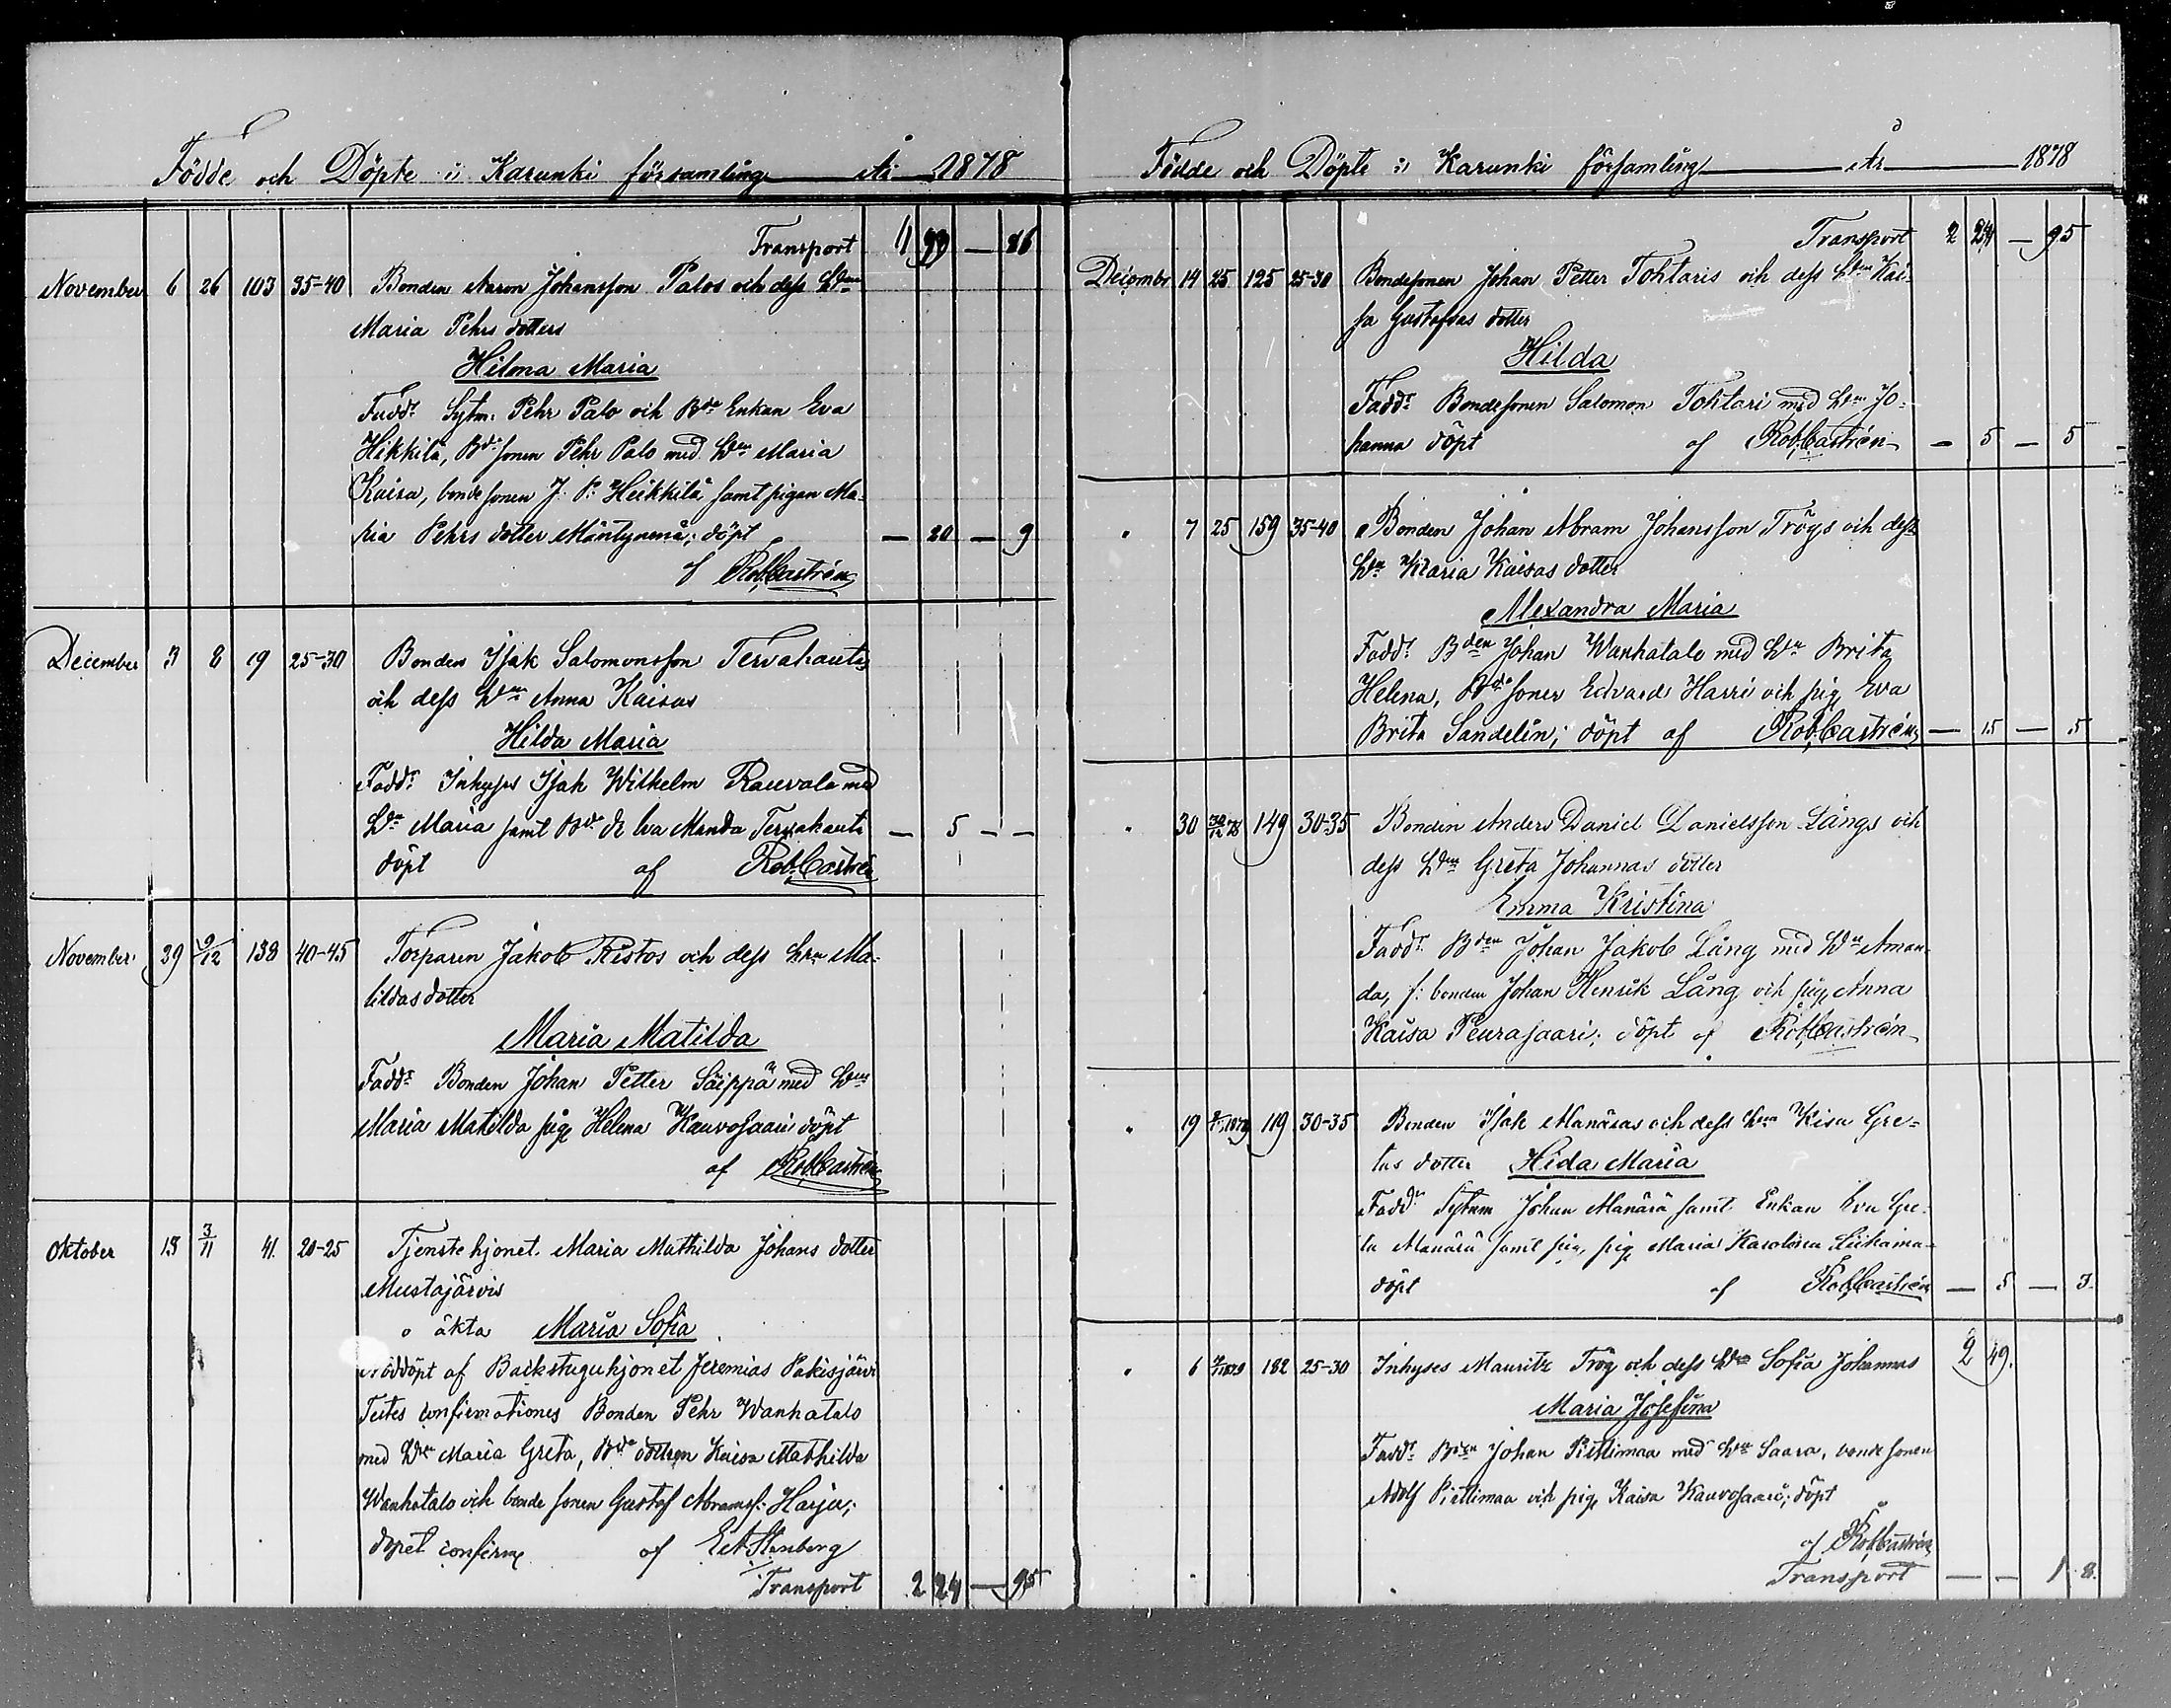 Födde och Döpte i Karunki församling År 1878
Transport 1 99 — 86
November 6 26 103 35-40 Bonden Aaron Johansson Palos och dess h:u
Maria Pehrs dotters
Hilma Maria
Fadd: Sytm: Pehr Palo och Bde Enkan Eva
Heikkilä, Bde sonen Pehr Palo med h:u Maria
Kaisa, bonde sonen J. P. Heikkilä samt pigan Ma-
ria Pehrs dotter Mäntynenä; döpt — 20 — 9
af RobCastrén
December 3 8 19 25-30 Bonden Isak Salomonsson Tervahauta
och dess h:u Anna Kaisas
Hilda Maria
Fadd: Inhyses Isak Wilhelm Rauvala med
h:u Maria samt Bde dr Eva Manda Tervahauta — 5 — —
döpt af Rob.Castrén
November 29 9/12 138 40-45 Torparen Jakob Ristos och dess h:u Ma-
tildas dotter
Maria Matilda
Fadd: Bonden Johan Petter Säippä med h:u
Maria Matilda pig Helena Kauvosaari döpt
af RobCastrén
Oktober 18 3/11 41. 20-25 Tjenstehjonet Maria Mathilda Johans dotter
Mustajärvis
o äkta Maria Sofia
Nöddöpt af Backstuguhjonet Jeremias Pakisjärvi
Testes confirmationes Bonden Pehr Wanhatalo
med h:u Maria Greta, Bde dottren Kaisa Mathilda
Wanhatalo och bonde sonen Gustaf Abramsf: Harju;
dopet confirm af Stenberg
Transport 2 24 — 95
Födde och Döpte i Karunki församling År 1878
Transport 2 24 — 95
December 14 25 125 25-30 Bondesonen Johan Petter Tohtaris och dess h:u Kai-
sa Gustafvas dotter
Hilda
Fadd: Bondesonen Salomon Tohtari med h:u Jo-
hanna döpt af RobCastrén — 5 — 5
" 7 25 159 35-40 Bonden Johan Abram Johansson Trögs och dess
h:u Maria Kaisas dotter
Alexandra Maria
Fadd: Bden Johan Wanhatalo med h:u Brita
Helena, Bde sonen Edvard Harri och pig Eva
Brita Sandelin; döpt af RobCastrén — 15 — 5
" 30 30/12 78 149 30-35 Bonden Anders Daniel Danielsson Långs och
dess h:u Greta Johannas dotter
Emma Kristina
Fadd: Bden Johan Jakob Lång med h:u Aman-
da, f: bonden Johan Henrik Lång och pig Anna
Kaisa Peurasaari; döpt af RobCastrén
" 19 1879 119 30-35 Bonden Isak Manäras och dess h:u Kisa Gre-
tas dotter Hida Maria
Fadd: Sytum Johan Manärä samt Enkan Eva Gre-
ta Manärä samt pig, pig Maria Karolina Liikama-
döpt af RobCastrén — 5 — 3.
" 6 1879 182 25-30 Inhyses Mauritz Trög och dess h:u Sofia Johannas 2 49.
Maria Josefina
Fadd: Bden Johan Piittimaa med h:u Saara, bonde sonen
Adolf Piittimaa och pig Kaisa Kauvosaari; döpt
af RobCastrén
Transport — — 1 8.